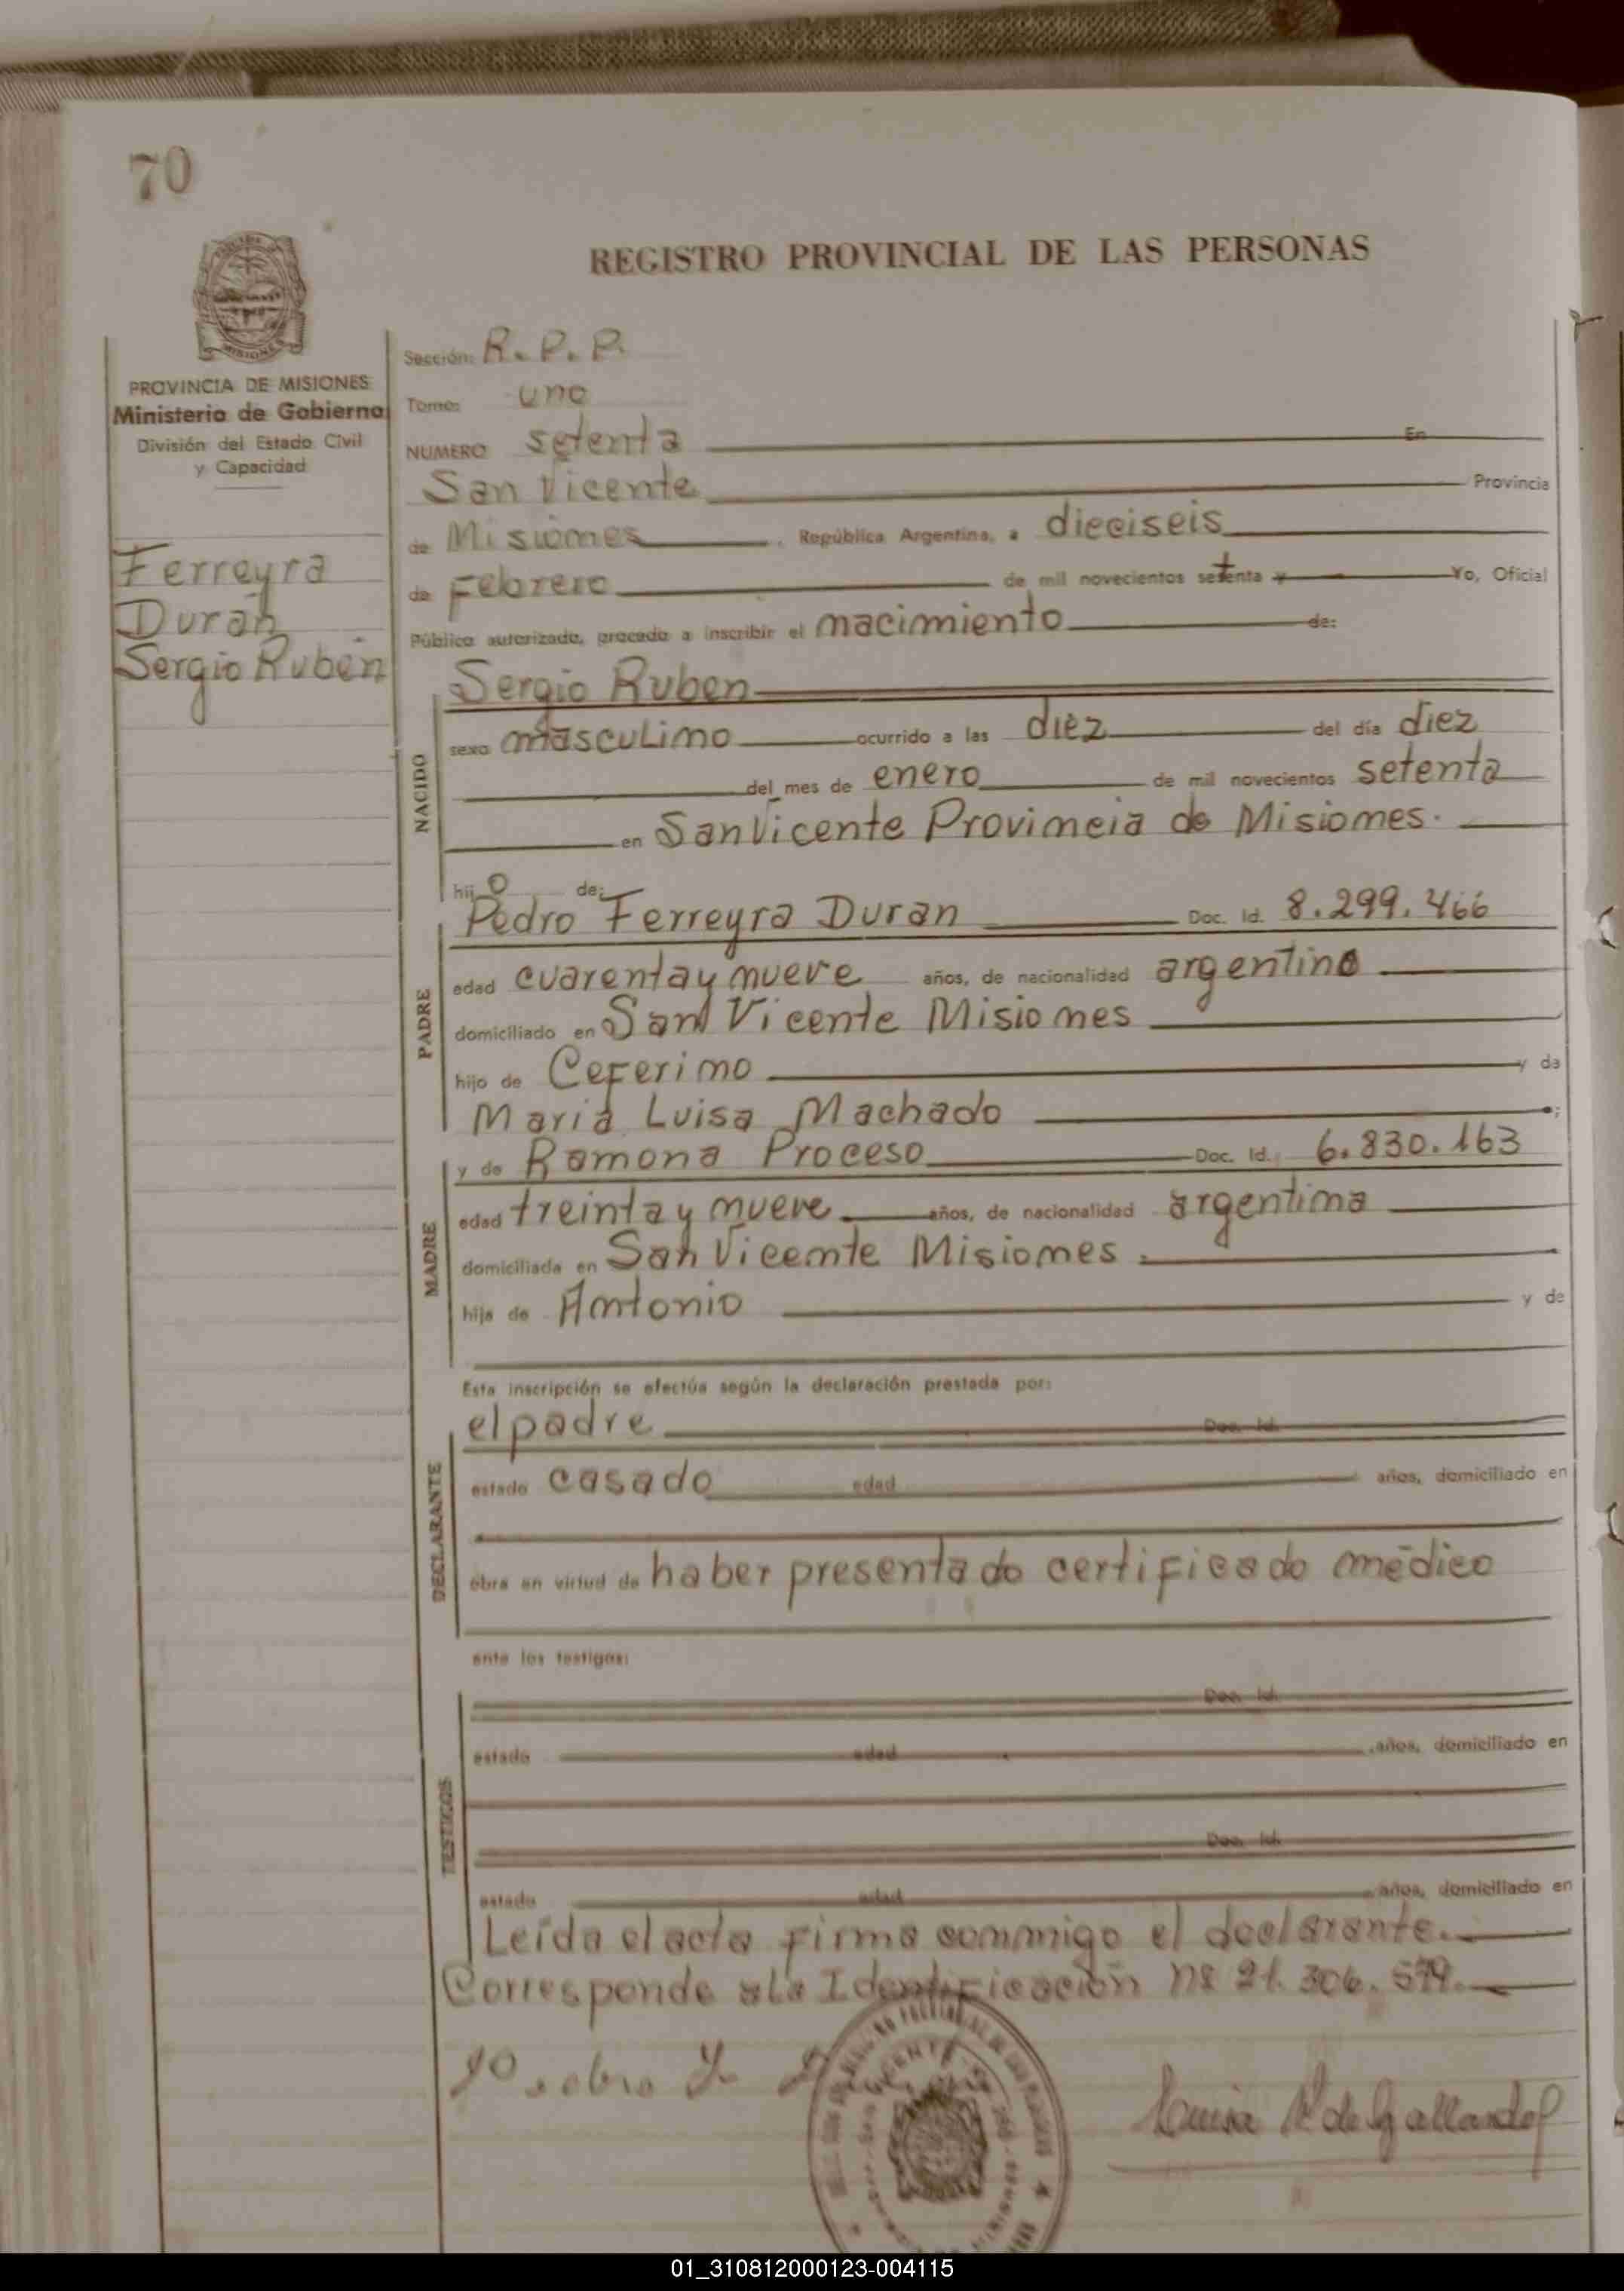 70
REGISTRO PROVINCIAL DE LAS PERSONAS
MISIONES
PROVINCIA DE MISIONES
Ministerio de Gobierno
División del Estado Civil
y Capacidad
Ferreyra
Durán
Sergio Rubén
Sección: R. P. P.
Tomo: uno
NUMERO setenta En
San Vicente Provincia
de Misiones, República Argentina, a dieciseis
de Febrero de mil novecientos setenta y Yo, Oficial
Público autorizado, procedo a inscribir el nacimiento de:
NACIDO
Sergio Ruben
sexo masculino ocurrido a las diez del día diez
del mes de enero de mil novecientos setenta
en San Vicente Provincia de Misiones.
hijo de:
PADRE
Pedro Ferreyra Duran Doc. Id. 8.299.466
edad cuarenta y nueve años, de nacionalidad argentino
domiciliado en San Vicente Misiones
hijo de Ceferino y de
Maria Luisa Machado ;
MADRE
y de Ramona Proceso Doc. Id. 6.830.163
edad treinta y nueve años, de nacionalidad argentina
domiciliada en San Vicente Misiones.
hija de Antonio y de
Esta inscripción se efectúa según la declaración prestada por:
DECLARANTE
el padre Doc. Id.
estado casado edad años, domiciliado en
obra en virtud de haber presentado certificado médico
ante los testigos:
TESTIGOS
Doc. Id.
estado edad años, domiciliado en
Doc. Id.
estado edad años, domiciliado en
Leída el acta firma conmigo el declarante.
Corresponde a la Identificación Nº 21.306.
Luisa de Gallardo
01_310812000123-004115